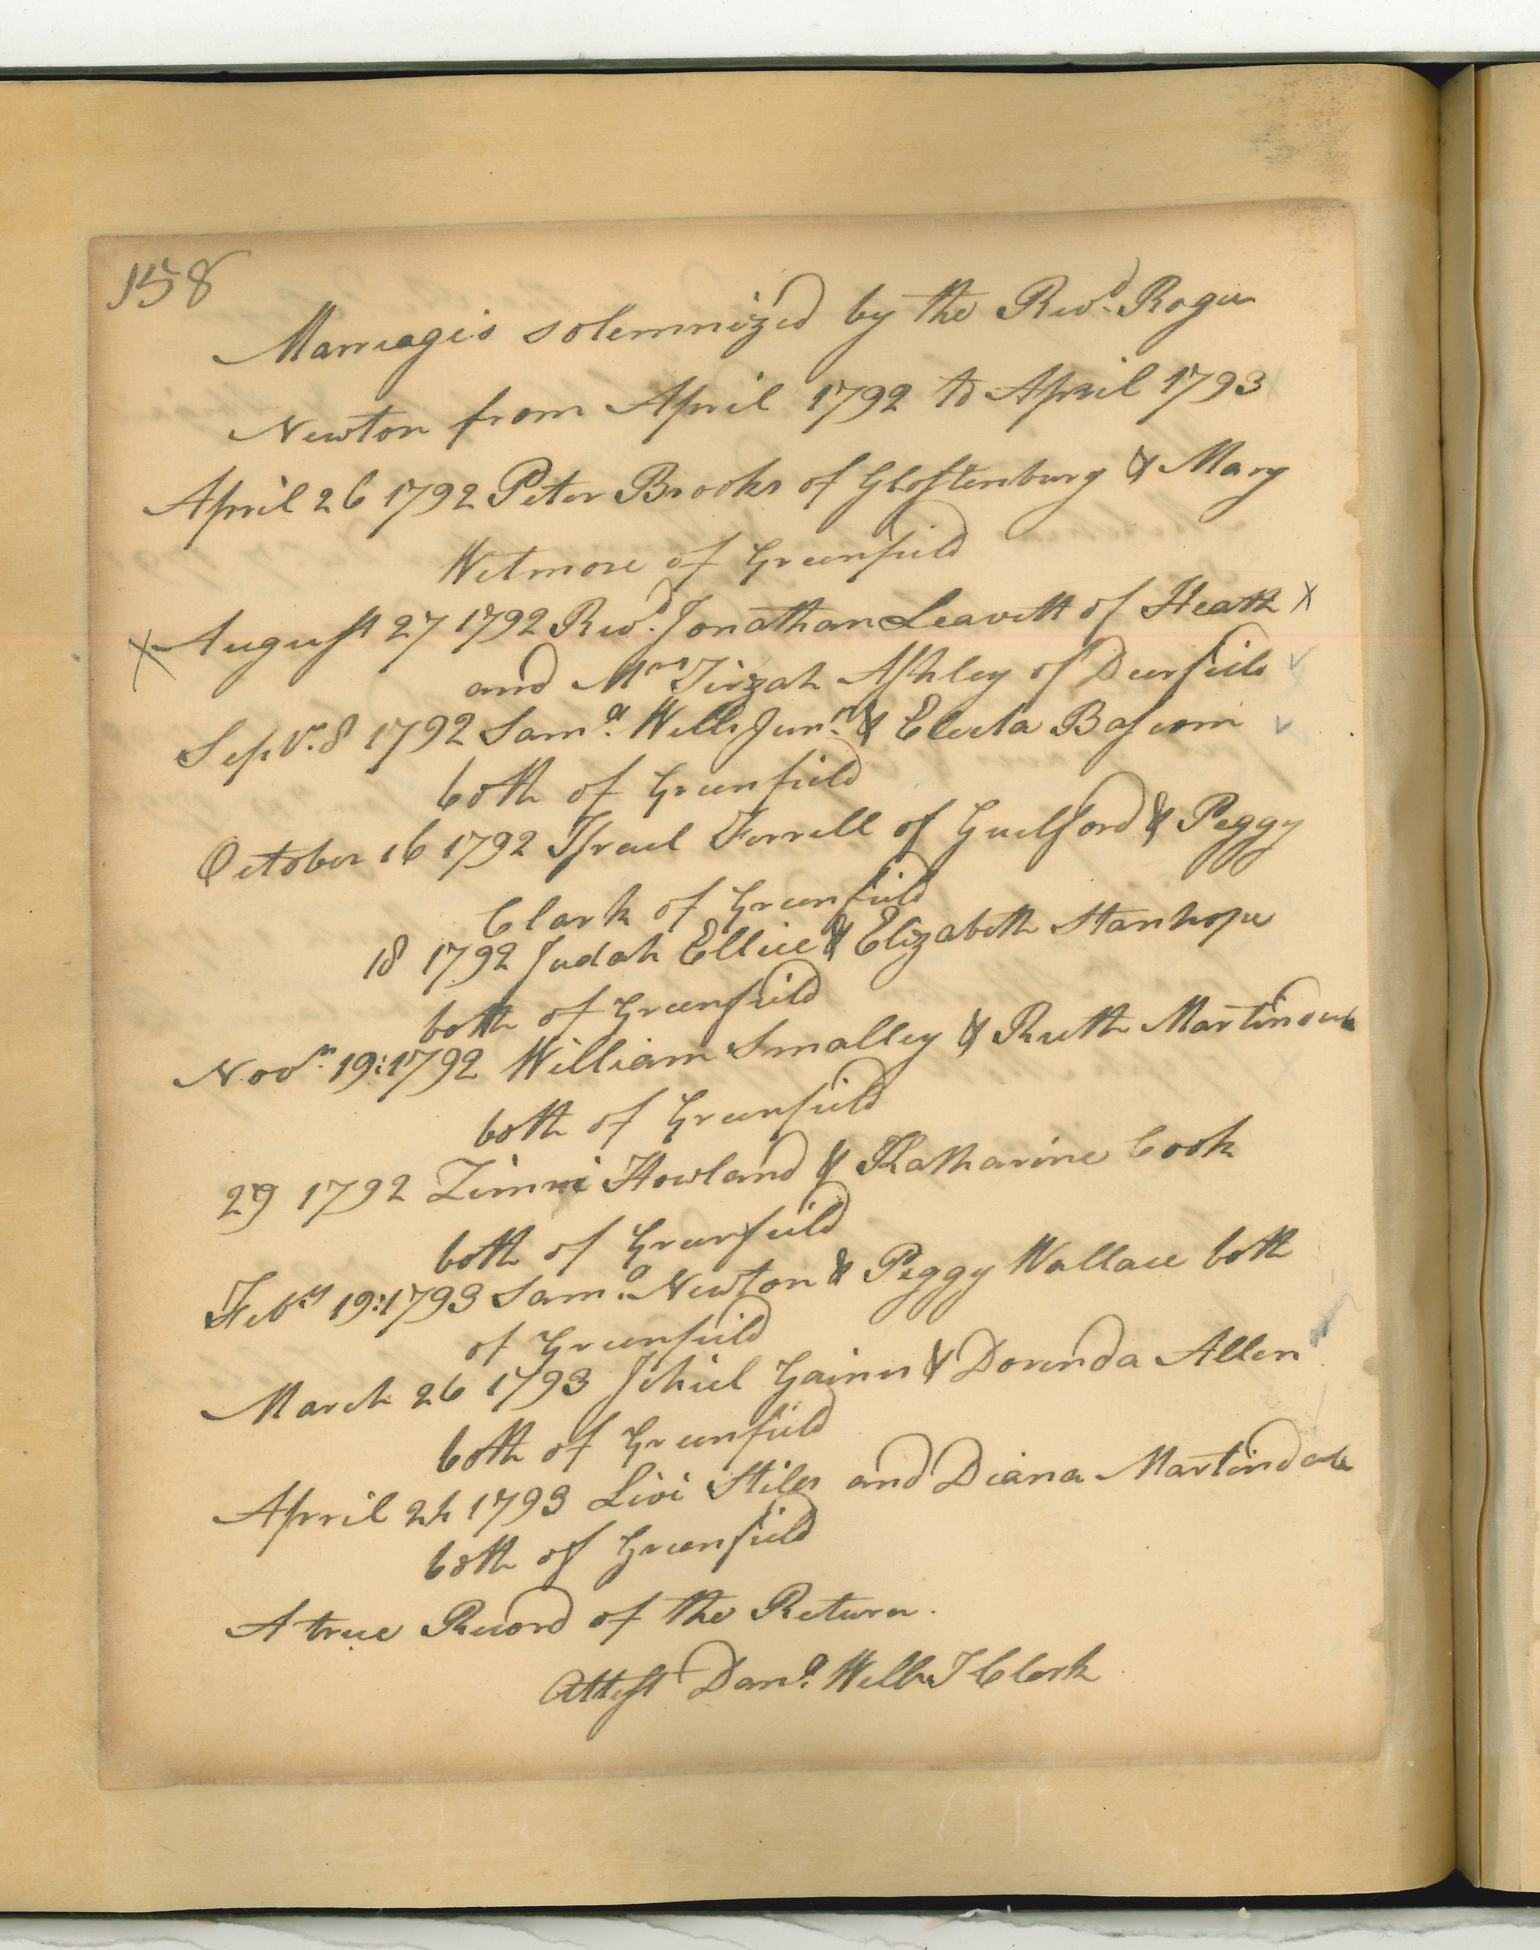 158
Marriages solemnized by the Revd. Roger
Newton from April 1792 to April 1793
April 26 1792 Peter Brooks of Glostenburg & Mary
Wetmore of Greenfield
X August 27 1792 Revd. Jonathan Leavitt of Heath X
and Mrs Tirzah Ashley of Deerfield
Sepr. 8 1792 Saml. Wells Junr. & Electa Bascom
both of Greenfield
October 16 1792 Israel Ferrell of Guelford & Peggy
Clark of Greenfield
18 1792 Judah Ellice & Elizabeth Stanhope
both of Greenfield
Novr. 19: 1792 William Smalley & Ruth Martindale
both of Greenfield
29 1792 Zimri Howland & Katharine Cook
both of Greenfield
Feby 19: 1793 Saml. Newton & Peggy Wallace both
of Greenfield
March 26 1793 Jehiel Gaines & Dorenda Allen
both of Greenfield
April 24 1793 Levi Stiles and Diana Martindale
both of Greenfield
A true Record of the Return.
Attest Danl. Wells T Clerk